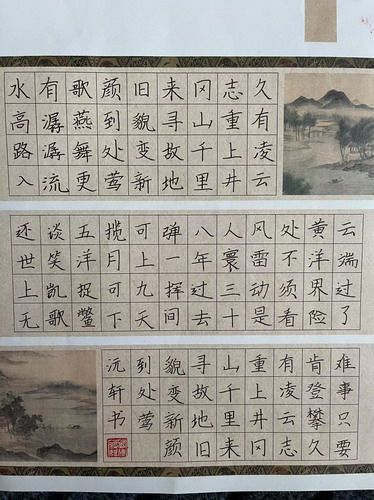 久有凌云
志重上井
冈山千里
来寻故地
旧貌变新
颜到处莺
歌燕舞更
有潺潺流
水高路入
云端过了
黄洋界险
处不须看
风雷动是
人寰三十
八年过去
弹一挥间
可上九天
揽月可下
五洋捉鳖
谈笑凯歌
还世上无
难事只要
肯登攀久
有凌云志
重上井冈
山千里来
寻故地旧
貌变新颜
到处莺
沅轩书